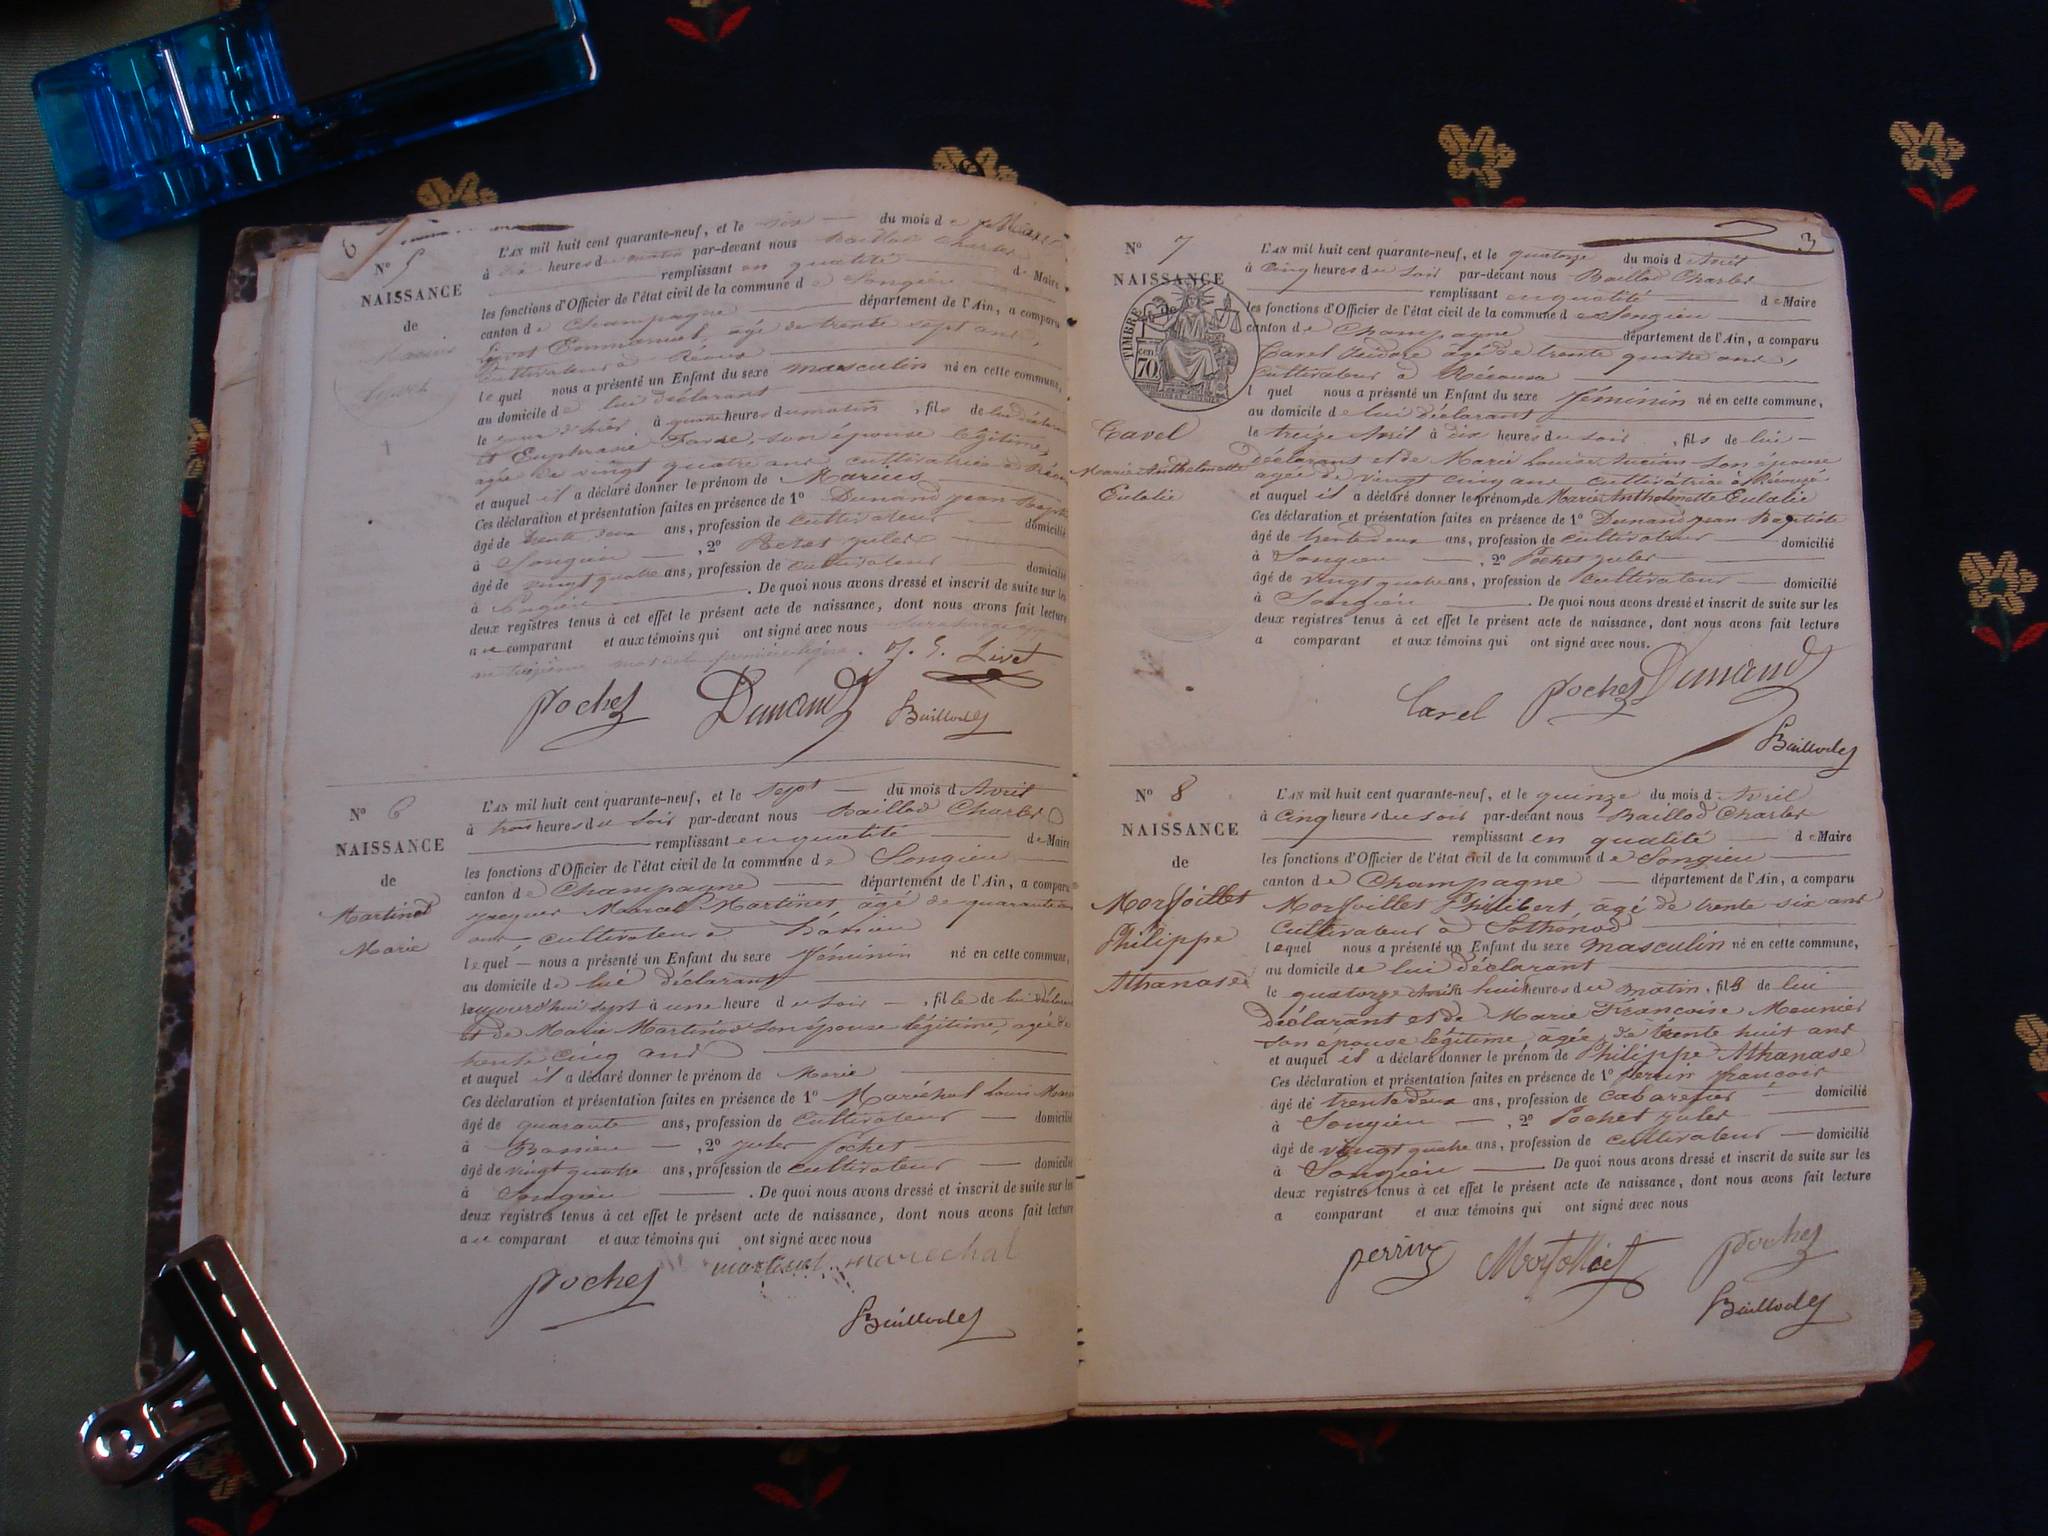 N° 5
NAISSANCE
de
L'AN mil huit cent quarante-neuf, et le six du mois de Mars
à heures du matin par-devant nous Baillod Charles
remplissant en qualité de Maire
les fonctions d'Officier de l'état civil de la commune de Songieu
canton de Champagne département de l'Ain, a comparu
Livet Emmanuel, âgé de trente sept ans,
cultivateur à
lequel nous a présenté un Enfant du sexe masculin né en cette commune,
au domicile de lui déclarant
le jour d'hier à quatre heures du matin, fils de lui déclarant
et Euphrasie Favre, son épouse légitime,
agée de vingt quatre ans cultivatrice à
et auquel il a déclaré donner le prénom de Marius
Ces déclaration et présentation faites en présence de 1° Dunand jean Baptiste
âgé de trente deux ans, profession de cultivateur domicilié
à Songieu, 2° Pochet jules
âgé de vingt quatre ans, profession de cultivateur domicilié
à Songieu. De quoi nous avons dressé et inscrit de suite sur les
deux registres tenus à cet effet le présent acte de naissance, dont nous avons fait lecture
au comparant et aux témoins qui ont signé avec nous
J. E. Livet
Pochet Dunand Baillod
N° 6
NAISSANCE
de
Martinet
Marie
L'AN mil huit cent quarante-neuf, et le sept du mois d Avril
à trois heures du soir par-devant nous Baillod Charles
remplissant en qualité de Maire
les fonctions d'Officier de l'état civil de la commune de Songieu
canton de Champagne département de l'Ain, a comparu
jacques Marcel Martinet âgé de quarante
ans cultivateur à
lequel nous a présenté un Enfant du sexe féminin né en cette commune,
au domicile de lui déclarant
le aujourd'hui sept à une heure du soir, fille de lui déclarant
et de Marie Martinod son épouse légitime, agée de
trente cinq ans
et auquel il a déclaré donner le prénom de Marie
Ces déclaration et présentation faites en présence de 1° Maréchal Louis
âgé de quarante ans, profession de cultivateur domicilié
à Bassieu, 2° jules Pochet
âgé de vingt quatre ans, profession de cultivateur domicilié
à Songieu. De quoi nous avons dressé et inscrit de suite sur les
deux registres tenus à cet effet le présent acte de naissance, dont nous avons fait lecture
au comparant et aux témoins qui ont signé avec nous
Pochet martinet marechal
Baillod
3
N° 7
NAISSANCE
de
TIMBRE
cen
70
Carel
Marie Anthelmette
Eulalie
L'AN mil huit cent quarante-neuf, et le quatorze du mois d Avril
à cinq heures du soir par-devant nous Baillod Charles
remplissant en qualité de Maire
les fonctions d'Officier de l'état civil de la commune de Songieu
canton de Champagne département de l'Ain, a comparu
Carel Isidore âgé de trente quatre ans,
cultivateur à
l quel nous a présenté un Enfant du sexe féminin né en cette commune,
au domicile de lui déclarant
le treize Avril à dix heures du soir, fils de lui
déclarant et de Marie Louise son épouse
agée de vingt cinq ans cultivatrice à
et auquel il a déclaré donner le prénom de Marie Anthelmette Eulalie
Ces déclaration et présentation faites en présence de 1° Dunand jean Baptiste
âgé de trente deux ans, profession de cultivateur domicilié
à Songieu, 2° Pochet jules
âgé de vingt quatre ans, profession de cultivateur domicilié
à Songieu. De quoi nous avons dressé et inscrit de suite sur les
deux registres tenus à cet effet le présent acte de naissance, dont nous avons fait lecture
a comparant et aux témoins qui ont signé avec nous.
Carel Pochet Dunand
Baillod
N° 8
NAISSANCE
de
Morfoillet
Philippe
Athanase
L'AN mil huit cent quarante-neuf, et le quinze du mois d Avril
à cinq heures du soir par-devant nous Baillod Charles
remplissant en qualité de Maire
les fonctions d'Officier de l'état civil de la commune de Songieu
canton de Champagne département de l'Ain, a comparu
Morfoillet Philibert âgé de trente six ans
cultivateur à Sothonod
lequel nous a présenté un Enfant du sexe masculin né en cette commune,
au domicile de lui déclarant
le quatorze Avril à huit heures du matin, fils de lui
déclarant et de Marie Françoise Meunier
son épouse légitime agée de trente huit ans
et auquel il a déclaré donner le prénom de Philippe Athanase
Ces déclaration et présentation faites en présence de 1° Perrin françois
âgé de trente deux ans, profession de cabaretier domicilié
à Songieu, 2° Pochet jules
âgé de vingt quatre ans, profession de cultivateur domicilié
à Songieu. De quoi nous avons dressé et inscrit de suite sur les
deux registres tenus à cet effet le présent acte de naissance, dont nous avons fait lecture
a comparant et aux témoins qui ont signé avec nous
perrin Morfoillet Pochet
Baillod